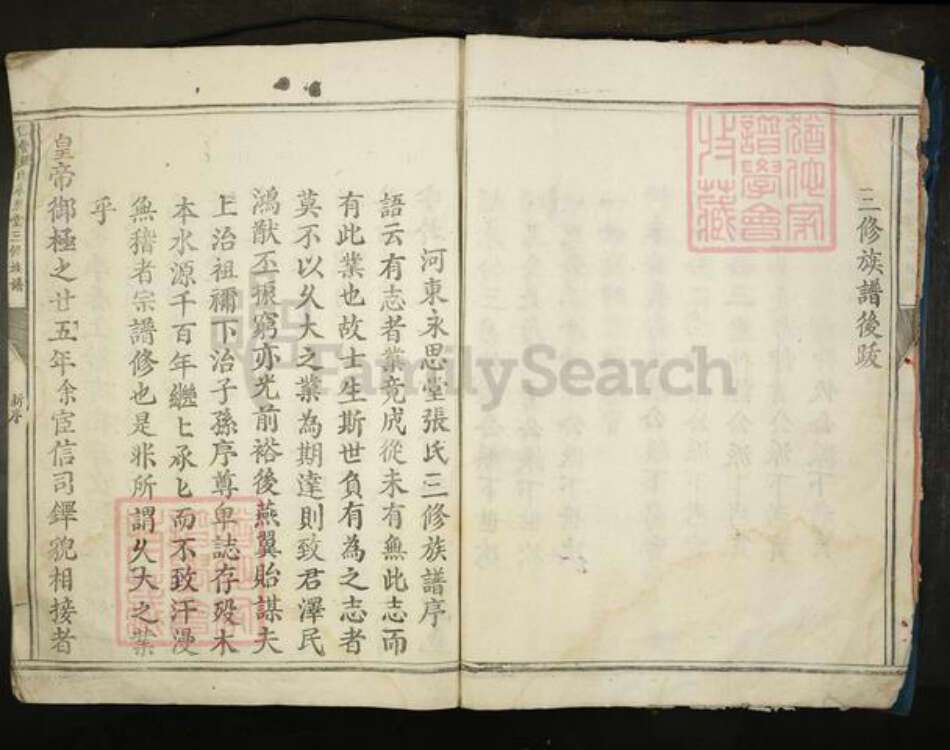 三修族譜後跋
河東永思堂張氏三修族譜序
語云有志者業竟成從未有無此志而
有此業也故士生斯世負有為之志者
莫不以久大之業為期達則致君澤民
鴻猷丕振窮亦光前裕後燕翼貽謀夫
上治祖禰下治子孫序尊卑誌存歿木
本水源千百年繼匕承匕而不致汗漫
無稽者宗譜修也是非所謂久大之業
乎
皇帝御極之廿五年余宦信司鐸貌相接者
永思堂三修族譜
新序
譜學會
收藏
FamilySearch